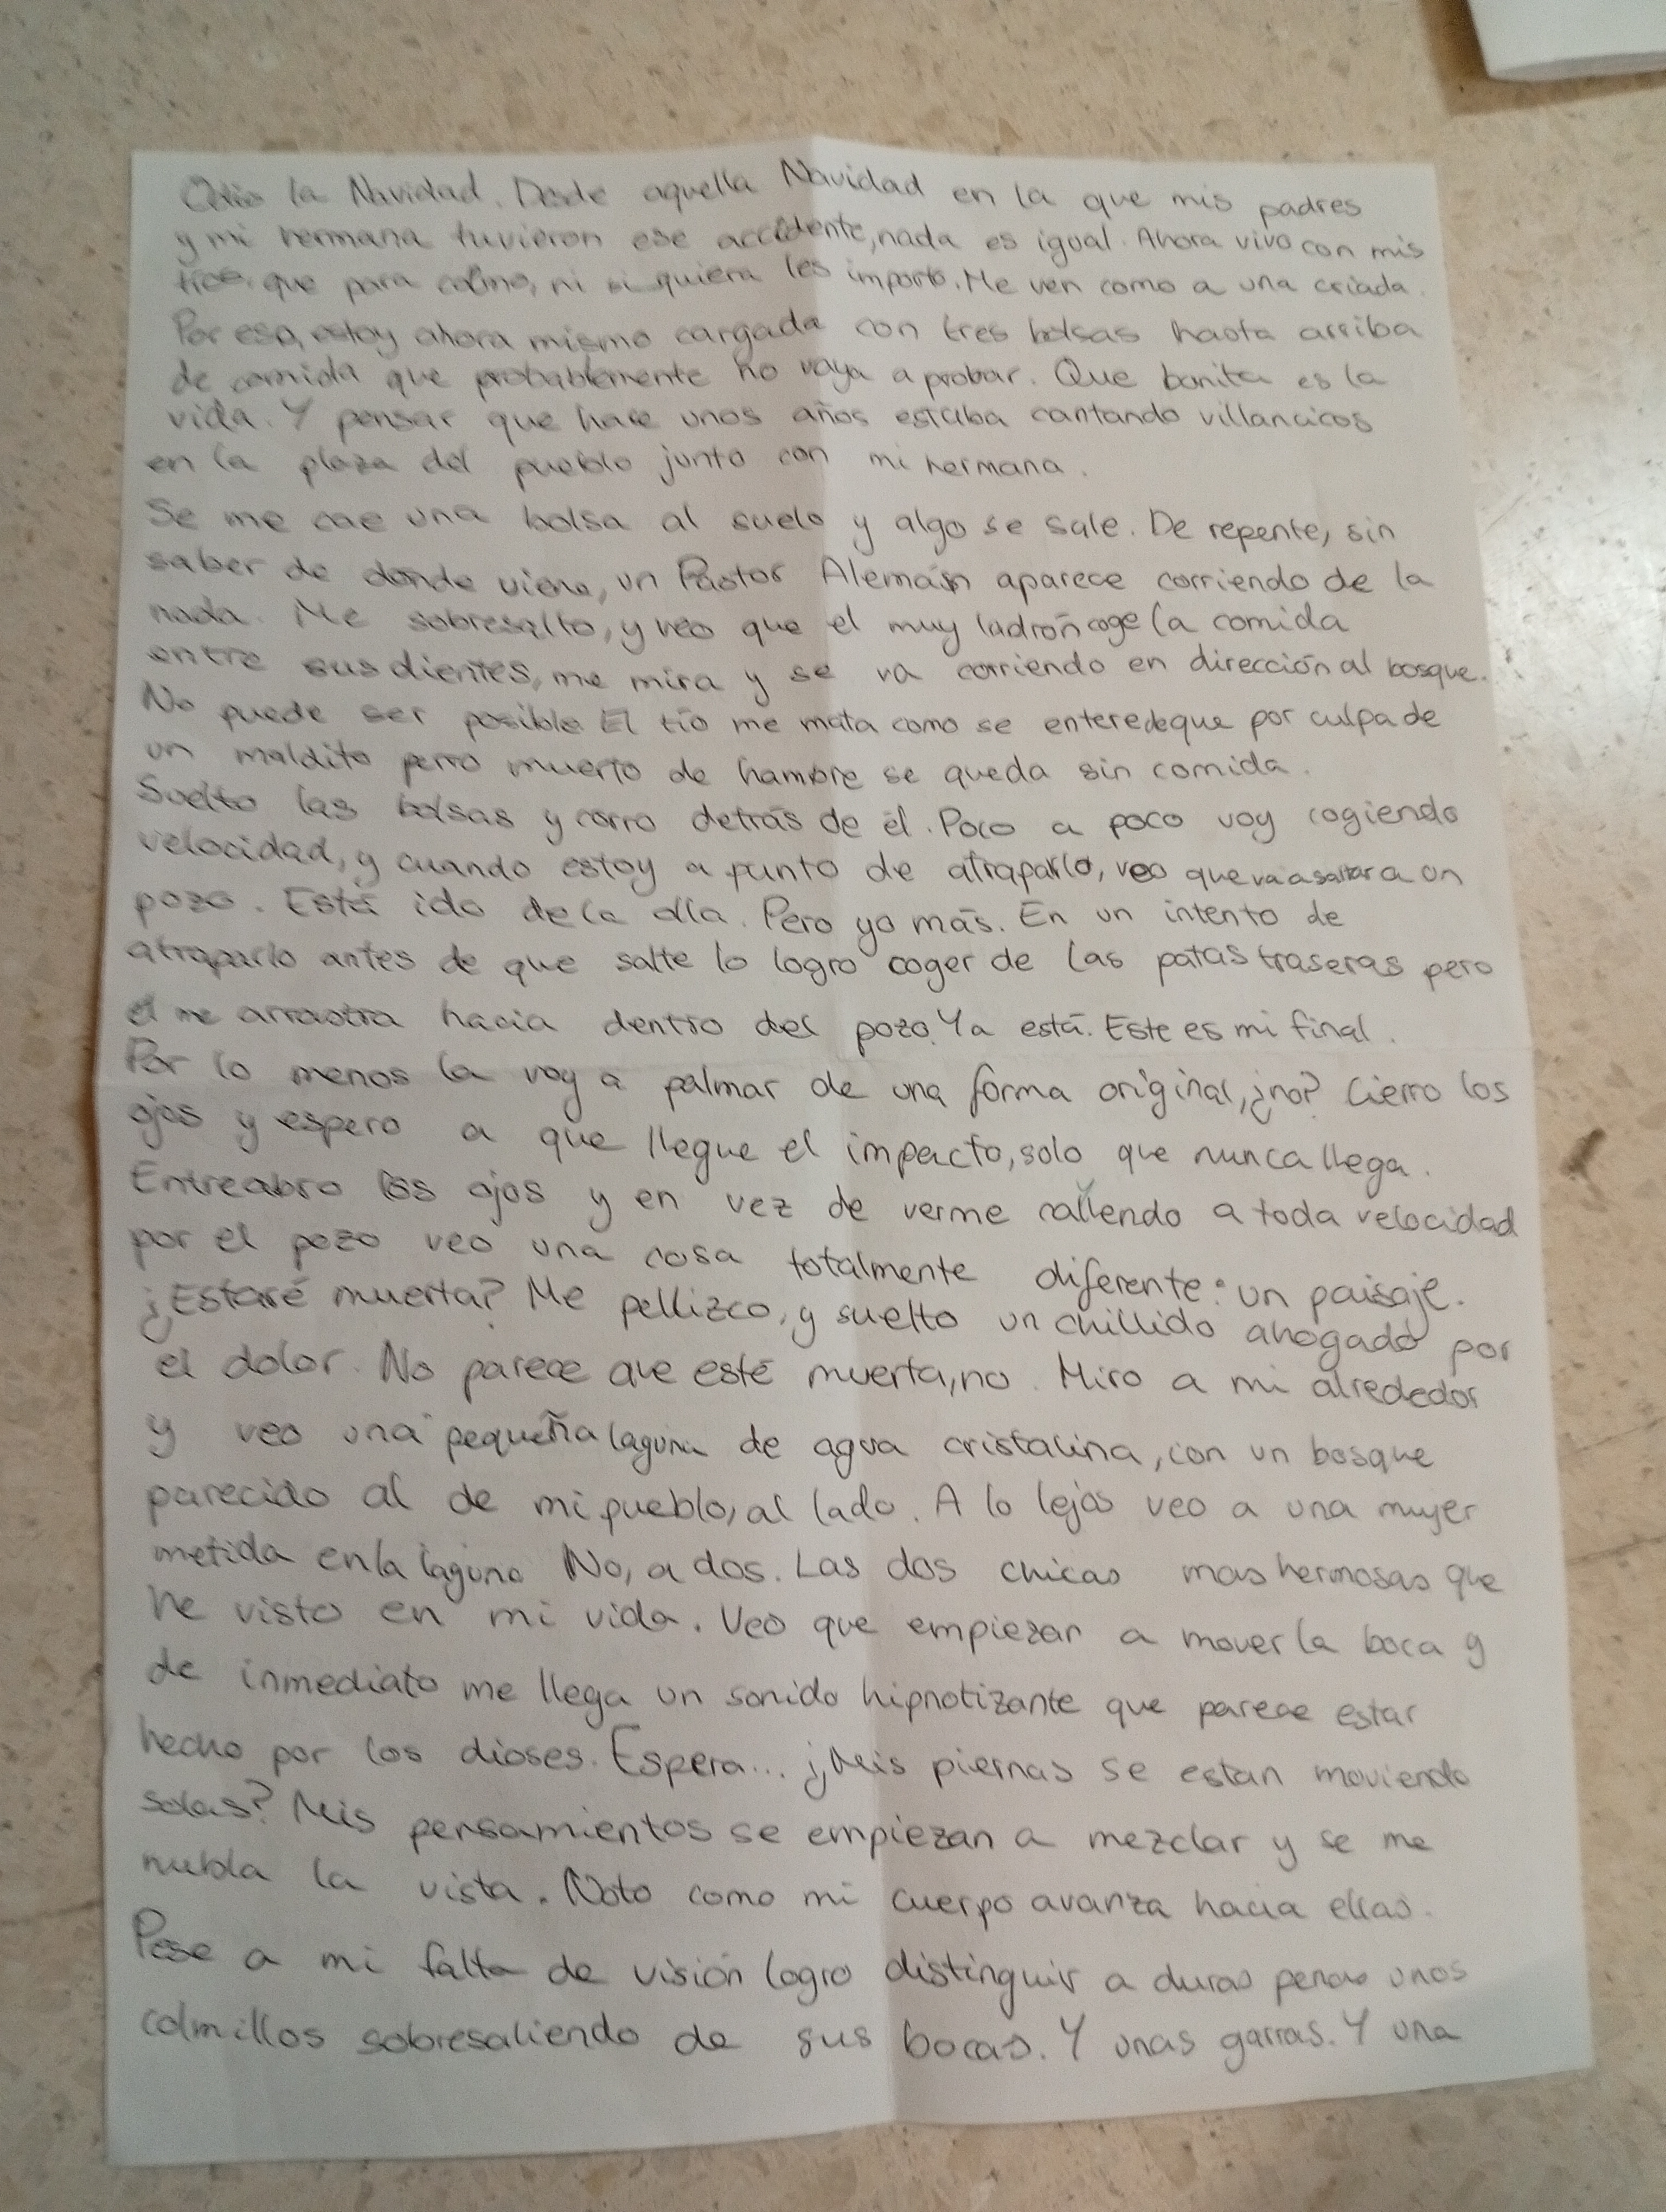 Odio la Navidad. Desde aquella Navidad en la que mis padres
y mi hermana tuvieron ese accidente, nada es igual. Ahora vivo con mis
tíos, que para colmo, ni si quiera les importo. Me ven como a una criada.
Por eso, estoy ahora mismo cargada con tres bolsas hasta arriba
de comida que probablemente no vaya a probar. Que bonita es la
vida. Y pensar que hace unos años estaba cantando villancicos
en la plaza del pueblo junto con mi hermana.
Se me cae una bolsa al suelo y algo se sale. De repente, sin
saber de donde viene, un Pastor Alemán aparece corriendo de la
nada. Me sobresalto, y veo que el muy ladrón coge la comida
entre sus dientes, me mira y se va corriendo en dirección al bosque.
No puede ser posible. El tío me mata como se entere de que por culpa de
un maldito perro muerto de hambre se queda sin comida.
Suelto las bolsas y corro detrás de él. Poco a poco voy cogiendo
velocidad, y cuando estoy a punto de atraparlo, veo que va a saltar a un
pozo. Está ido de la olla. Pero yo más. En un intento de
atraparlo antes de que salte lo logro coger de las patas traseras pero
el me arrastra hacia dentro del pozo. Ya está. Este es mi final.
Por lo menos la voy a palmar de una forma original, ¿no? Cierro los
ojos y espero a que llegue el impacto, solo que nunca llega.
Entreabro los ojos y en vez de verme callendo a toda velocidad
por el pozo veo una cosa totalmente diferente: un paisaje.
¿Estaré muerta? Me pellizco, y suelto un chillido ahogado por
el dolor. No parece que esté muerta, no. Miro a mi alrededor
y veo una pequeña laguna de agua cristalina, con un bosque
parecido al de mi pueblo, al lado. A lo lejos veo a una mujer
metida en la laguna. No, a dos. Las dos chicas mas hermosas que
he visto en mi vida. Veo que empiezan a mover la boca y
de inmediato me llega un sonido hipnotizante que parece estar
hecho por los dioses. Espera... ¿Mis piernas se estan moviendo
solas? Mis pensamientos se empiezan a mezclar y se me
nubla la vista. Noto como mi cuerpo avanza hacia ellas.
Pese a mi falta de visión logro distinguir a duras penas unos
colmillos sobresaliendo de sus bocas. Y unas garras. Y una